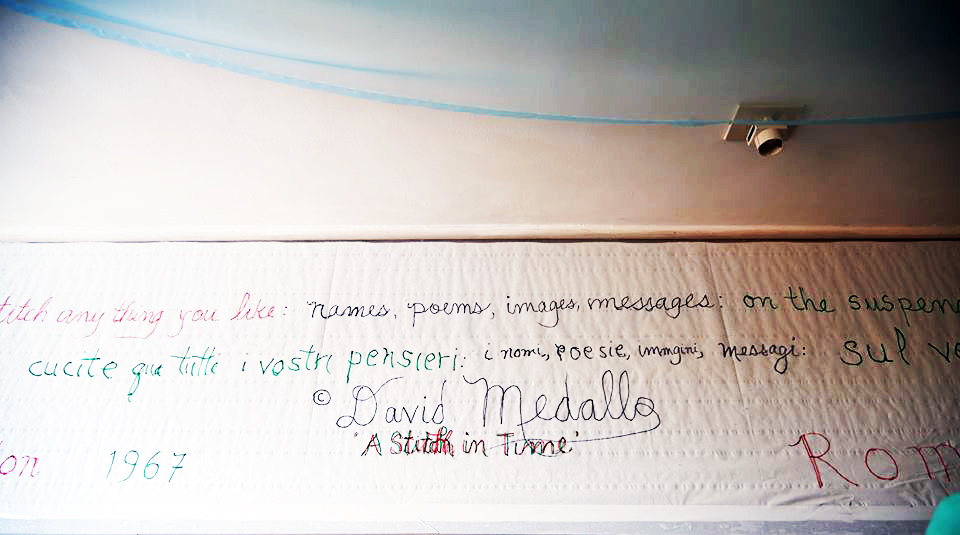 stitch any thing you like: names, poems, images, messages: on the suspen
cucite qua tutti i vostri pensieri: i nomi, poesie, immgini, messagi: sul ve
© David Medalla
"A Stitch in Time"
on 1967 Rom